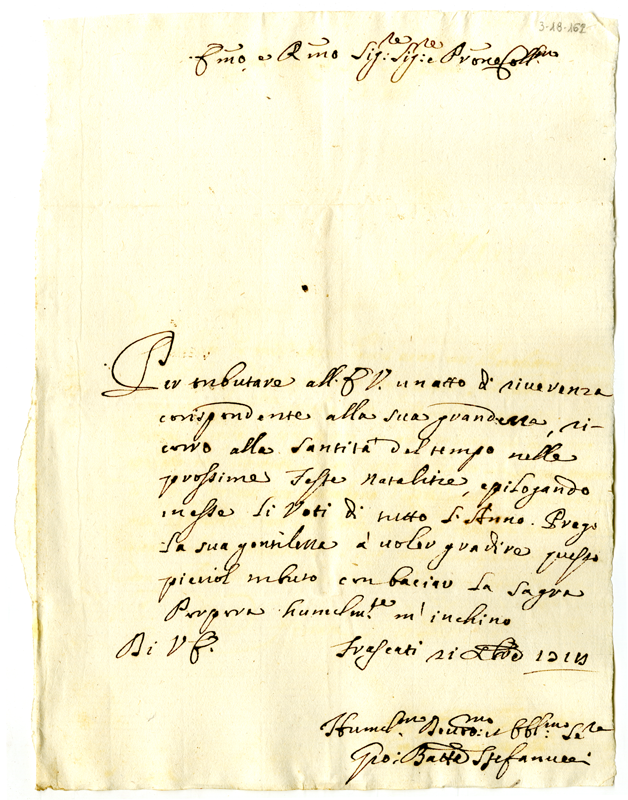 3-18-162
Emo. e Rmo Sig:re Sig:re e Prone Coll.mo
Per tributare all. E V. un atto di riverenza
corispondente alla sua grandezza, ri-
corro alla Santità del tempo nelle
prossime Feste Natalitie, epilogando
in esse li Voti di tutto l'Anno. Prego
la sua gentilezza à voler gradire questo
picciol tributo con baciar la Sagra
Porpora humilm.te m'inchino
Di V E.
Frascati 21 Xbre
Humil.mo Devo.mo et Obl:mo Se.re
Gio: Batta Stefanucci